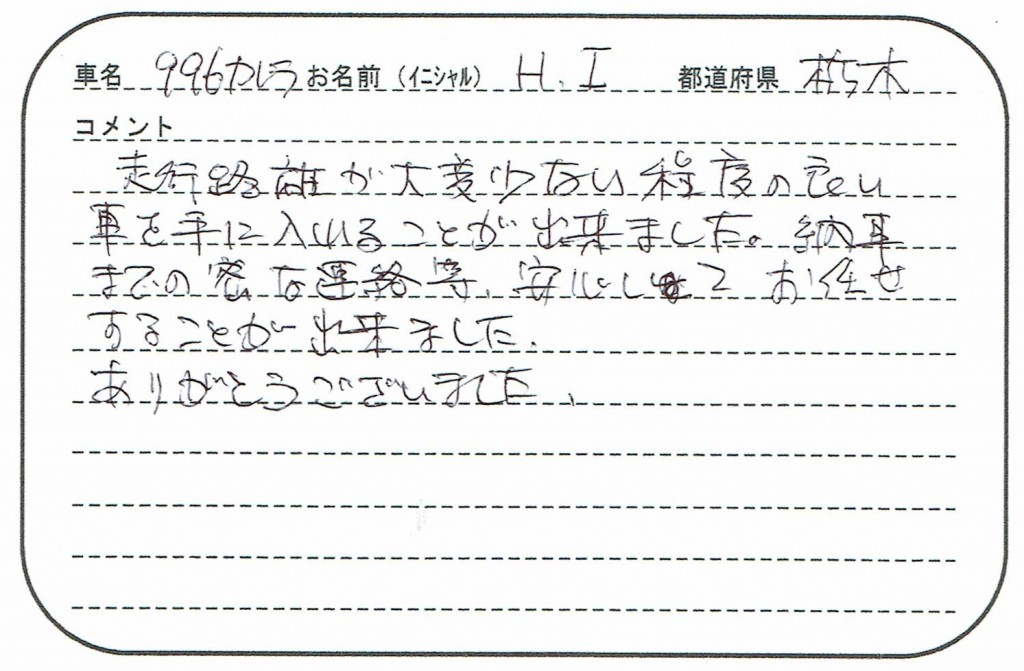 車名 996カレラ お名前（イニシャル） H.I 都道府県 栃木
コメント
走行路離が大変少ない程度の良い
車を手に入れることが出来ました。納車
までの密な連絡等、安心して お任せ
することが出来ました.
ありがとうございました、